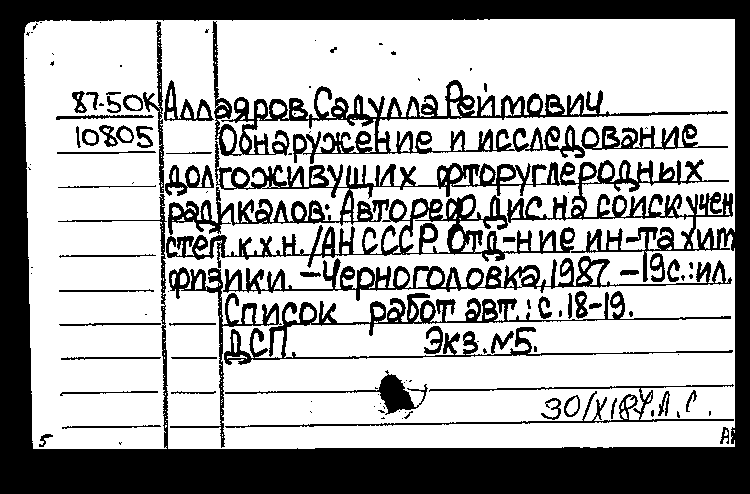 87-50К Аллаяров, Садулла Реймович
10805 Обнаружение и исследование
долгоживущих фторуглеродных
радикалов: Автореф. дис. на соиск. учен
степ. к.х.н. /АН СССР. Отд-ние ин-та хим
физики. — Черноголовка, 1987. — 19с.: ил.
Список работ авт.: с. 18-19.
ДСП. Экз. №5.
30/XI 87.
5